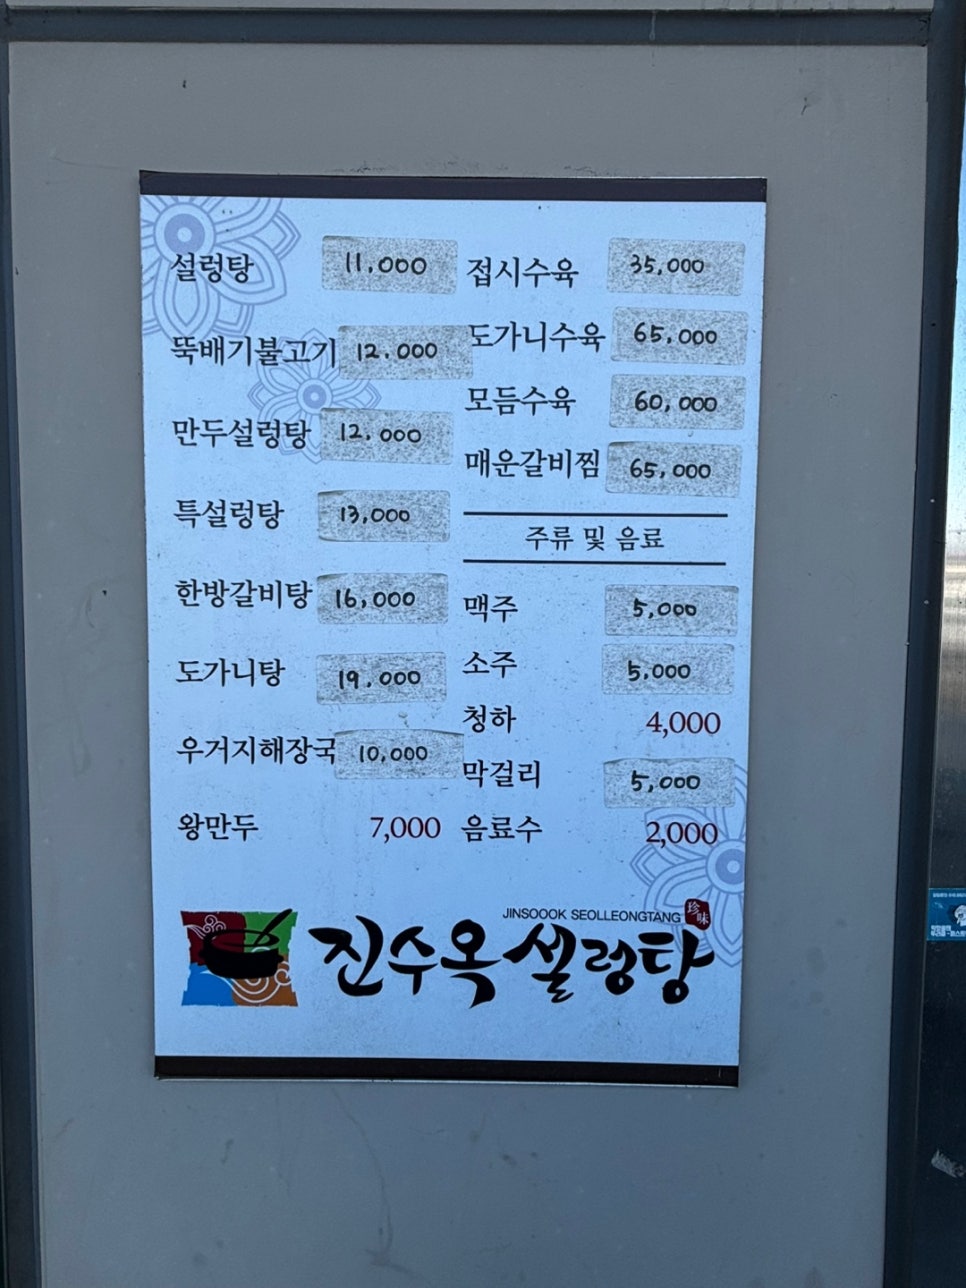 설렁탕 11,000
뚝배기불고기 12.000
만두설렁탕 12.000
특설렁탕 13,000
한방갈비탕 16,000
도가니탕 19.000
우거지해장국 10,000
왕만두 7,000
접시수육 35,000
도가니수육 65,000
모듬수육 60,000
매운갈비찜 65,000
주류 및 음료
맥주 5,000
소주 5,000
청하 4,000
막걸리 5,000
음료수 2,000
JINSOOOK SEOLLEONGTANG
珍味
진수옥설렁탕